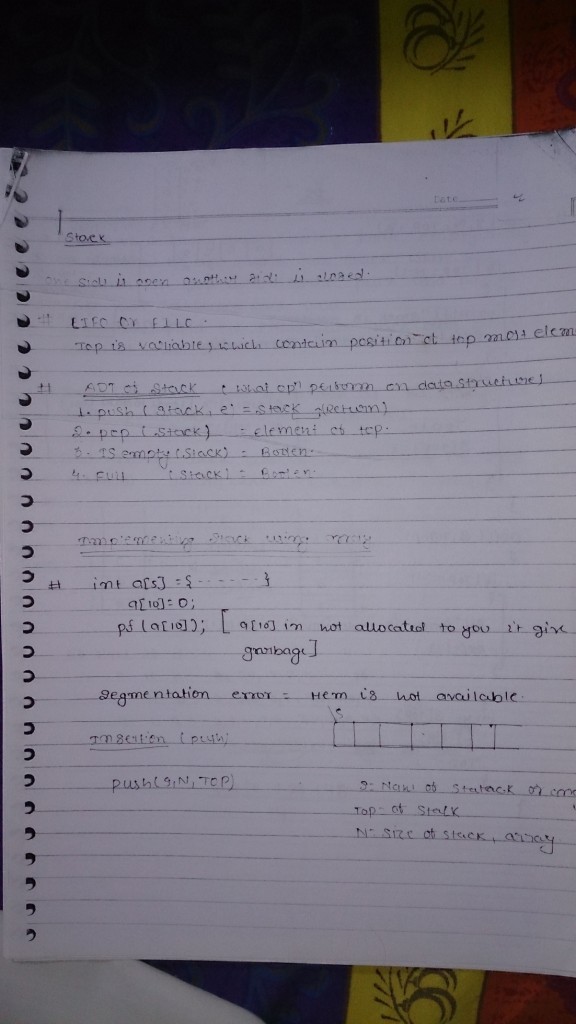 Date
Stack
one side is open another side is closed.
# LIFO or FILO.
Top is variable, which contain position of top most elem
# ADT of Stack (what opn perform on data structure)
1. push (stack, e) = stack (return)
2. pop (stack) = element of top.
3. IS empty (stack) =
4. Full (stack) =
Implementing Stack using array
# int a[5] = {- - - - - -}
a[10] = 0;
pf (a[10]); [ a[10] im not allocated to you it give
garbage]
Segmentation error = Mem is not available.
S
Insertion (push)
push(S, N, TOP)
S- Name of Statack or
Top- of Stack
N- size of stack, array